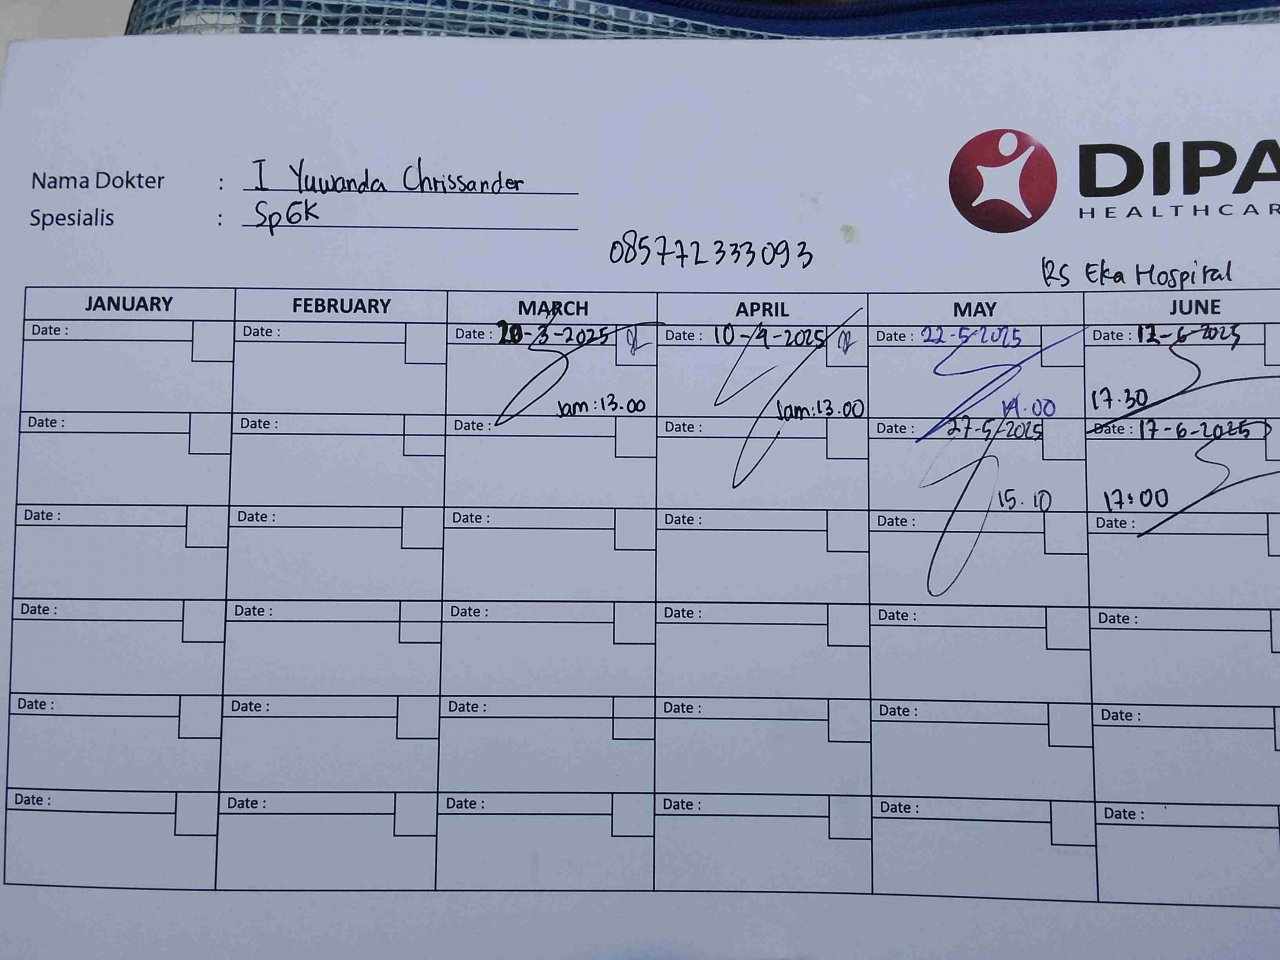 Nama Dokter : I Yuwanda Chrissander
Spesialis : SpGK
DIPA
HEALTHCAR
085772333093
RS Eka Hospital
JANUARY FEBRUARY MARCH APRIL MAY JUNE
Date : Date : Date : 20-3-2025 Date : 10-4-2025 Date : 22-5-2025 Date : 12-6-2025
Jam : 13.00 Jam : 13.00 14.00 17.30
Date : Date : Date : Date : Date : 27-5-2025 Date : 17-6-2025
15.10 17:00
Date : Date : Date : Date : Date : Date :
Date : Date : Date : Date : Date : Date :
Date : Date : Date : Date : Date : Date :
Date : Date : Date : Date : Date : Date :